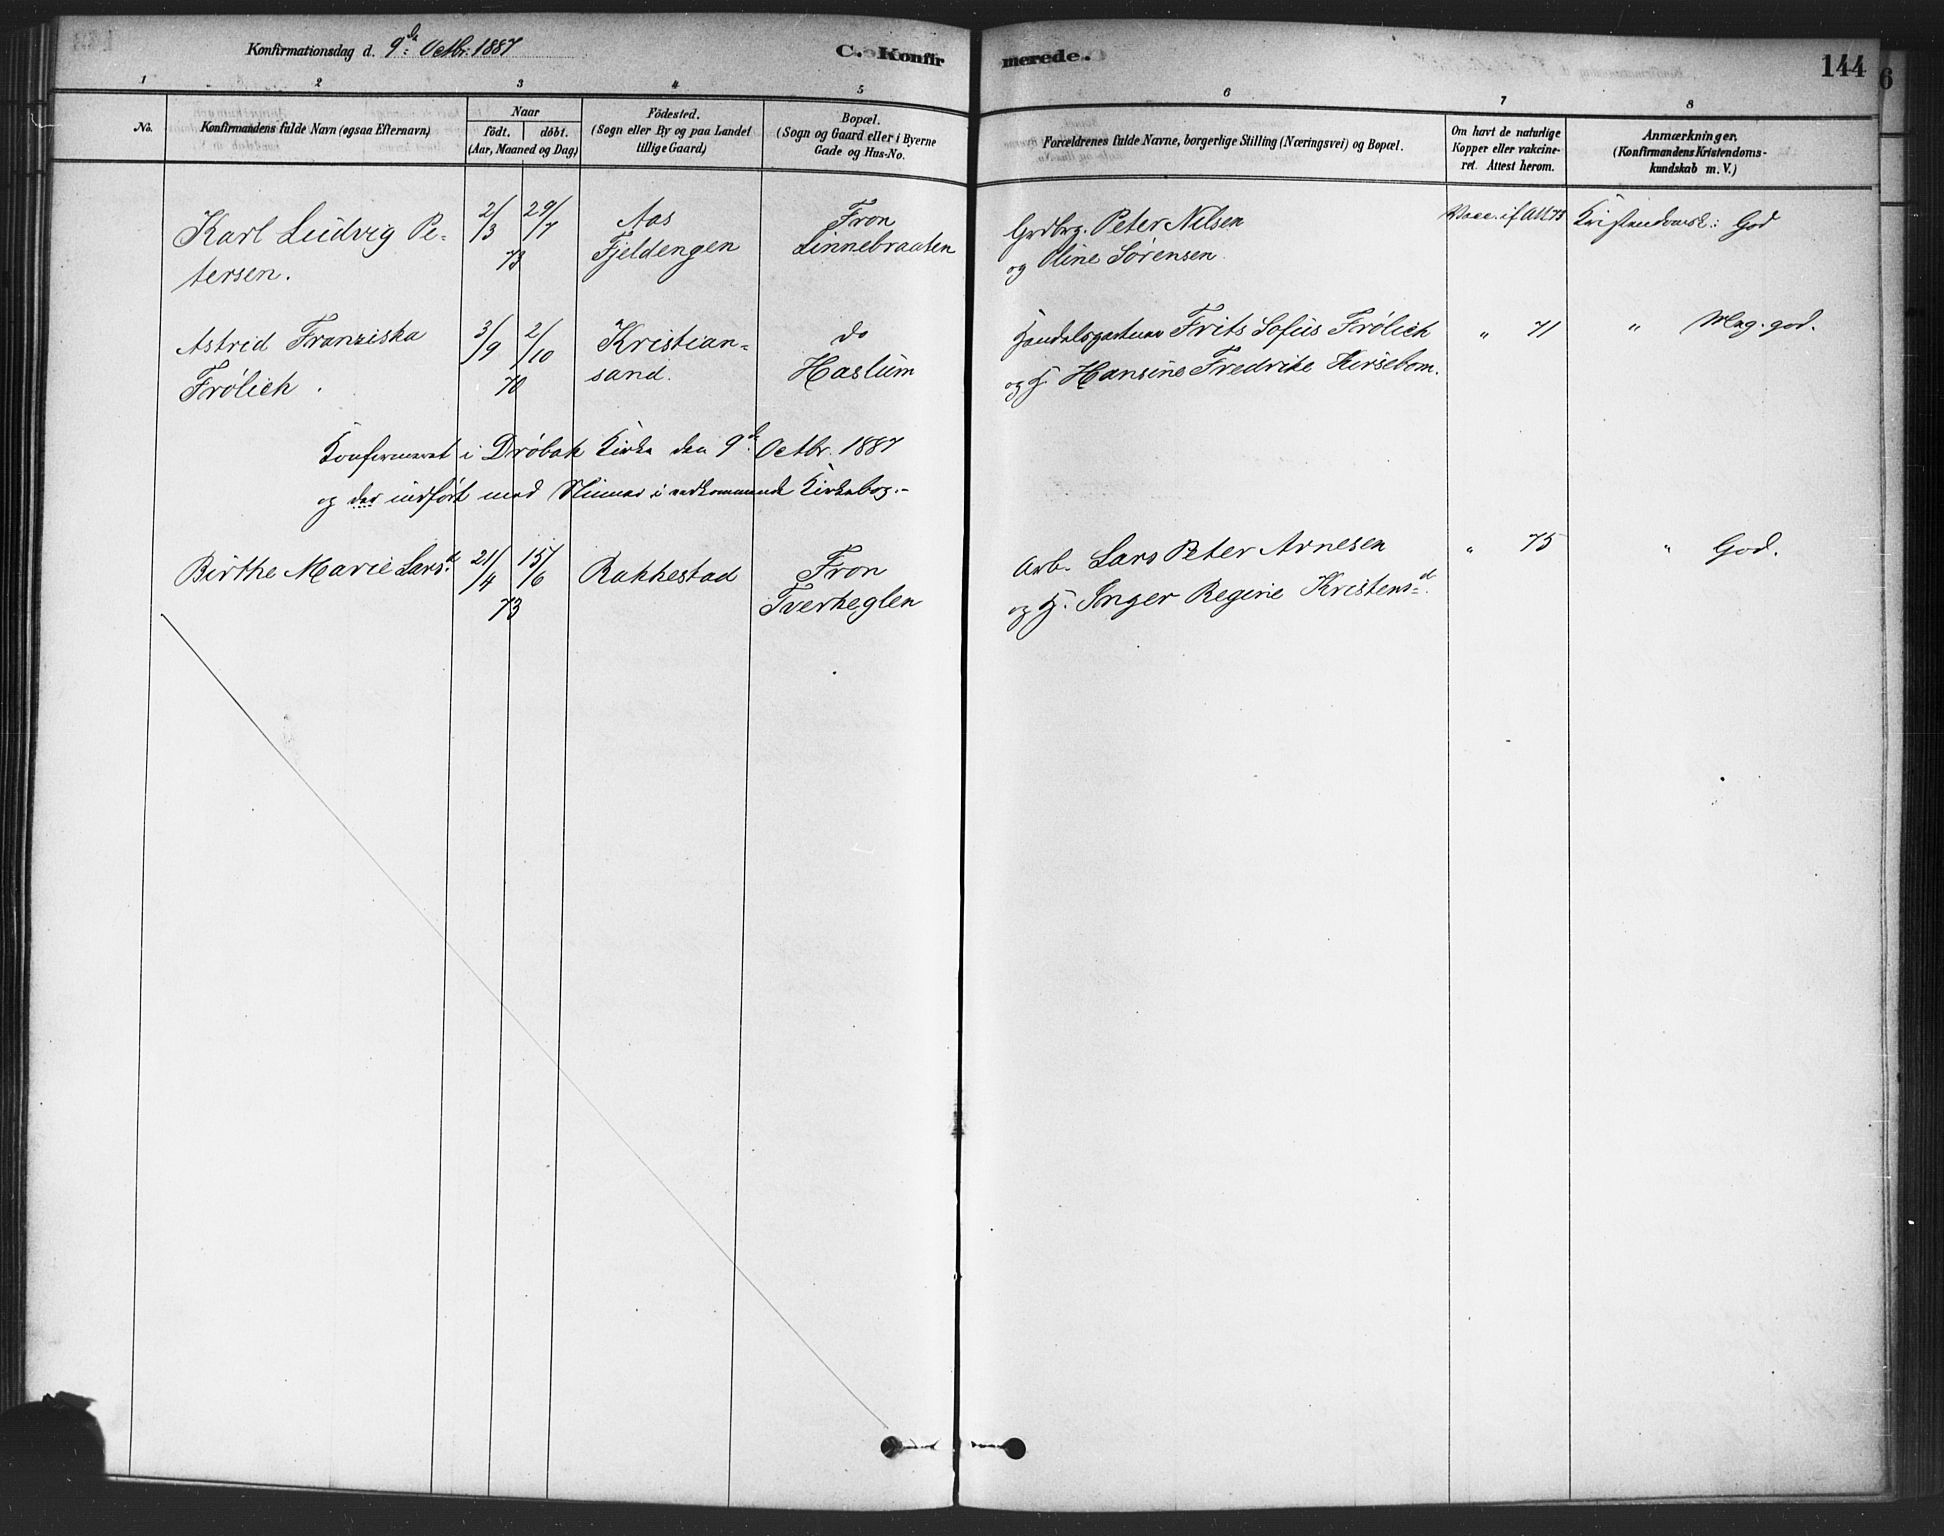 Konfirmationsdag d. 9de Octbr. 1887
C. Konfirmerede.
144
6
1 2 3 4 5 6 7 8
No.
Konfirmandens fulde Navn (ogsaa Efternavn)
Naar
födt. döbt.
(Aar, Maaned og Dag)
Födested.
(Sogn eller By og paa Landet
tillige Gaard)
Bopæl.
(Sogn og Gaard eller i Byerne
Gade og Hus-No.
Forældrenes fulde Navne, borgerlige Stilling (Næringsvei) og Bopæl.
Om havt de naturlige
Kopper eller vakcine-
ret. Attest herom.
Anmærkninger.
(Konfirmandens Kristendoms-
kundskab m. V.)
Karl Ludvig Pe-
tersen.
2/3 29/7
73
Aas
Fjeldengen
Fron
Linnebraaten
Grdbrg. Peter Nilsen
og Oline Sørensen
Vacc. if. Att 75
Kristendomsk: God
Astrid Franziska
Frølich.
3/9 2/10
70
Kristian-
sand.
do
Haslum
Handelsgartner Frits Sofus Frølich
og H. Hansine Fredrike Kirsebom.
" 71
" Meg. god.
Konfirmeret i Drøbak Kirke den 9de Octbr. 1887
og der indført med Numer i vedkommende Kirkebog.-
Birthe Marie Larsd.
21/4 15/6
73
Rakkestad
Fron
Tverheglen
Arb. Lars Peter Arnesen
og H. Inger Regine Kristensd.
" 75
" God.